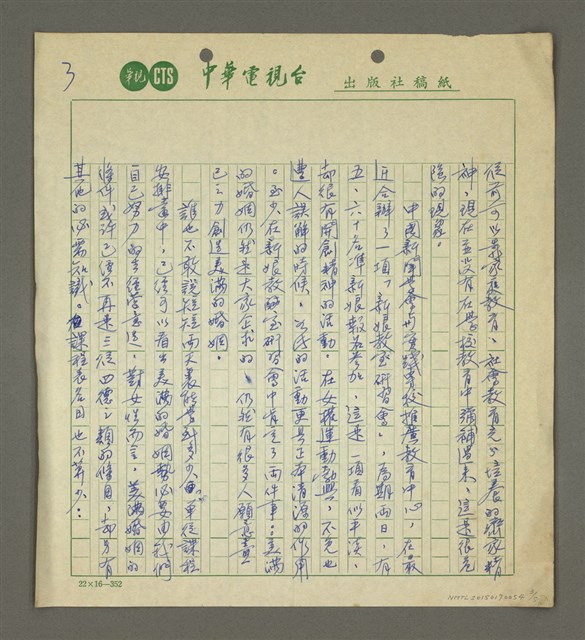 3
華視 CTS 中華電視台 出版社稿紙
從前可以靠家庭教育、社會教育充分培養的齊家精
神,現在並沒有在學校教育中彌補過來,這是很危
險的現象。
中國新聞學會與實踐專校推廣教育中心,在最
近合辦了一項「新娘教室研習會」,為期兩日,有
五、六十名準新娘報名參加,這是一項看似平淡、
却很有開創精神的活動。在女權運動勃興,不免也
遭人誤解的時候,公民的活動更具正本清源的作用
。至少在新娘教室研習會中肯定了兩件事:美滿
的婚姻仍然是大家企求的,仍然有很多人願意盡
己之力創造美滿的婚姻。
誰也不敢說短短兩天裏能學到多少,單從課程
安排當中,已經可以看出美滿的婚姻勢必要由我們
自己努力的去經營意造,對女性而言,美滿婚姻的
條件或許已經不再是三從四德之類的條目,却另有
其他的必需知識。課程表名目也不算少:
22×16—352
NMTL20150190054